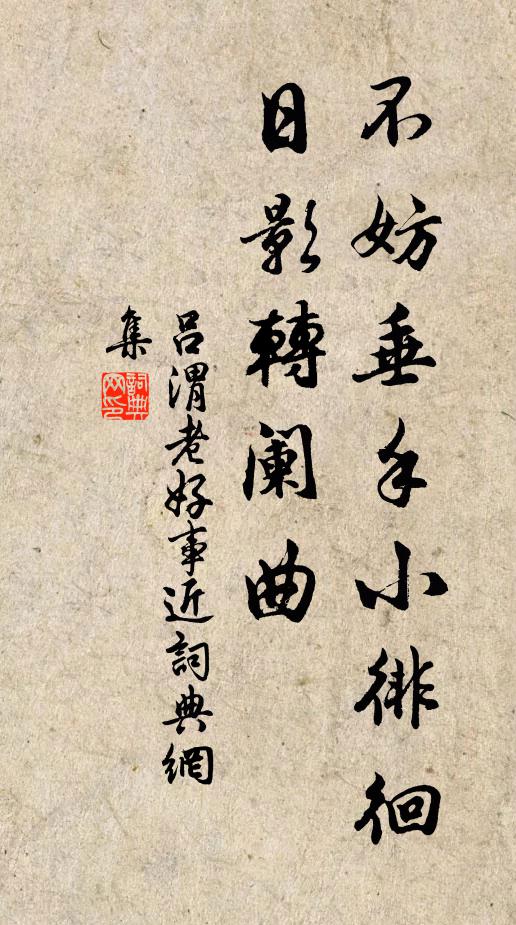 不妨垂手小徘徊
日影轉阑曲
吕渭老好事近詞典網
集
詞典
网印